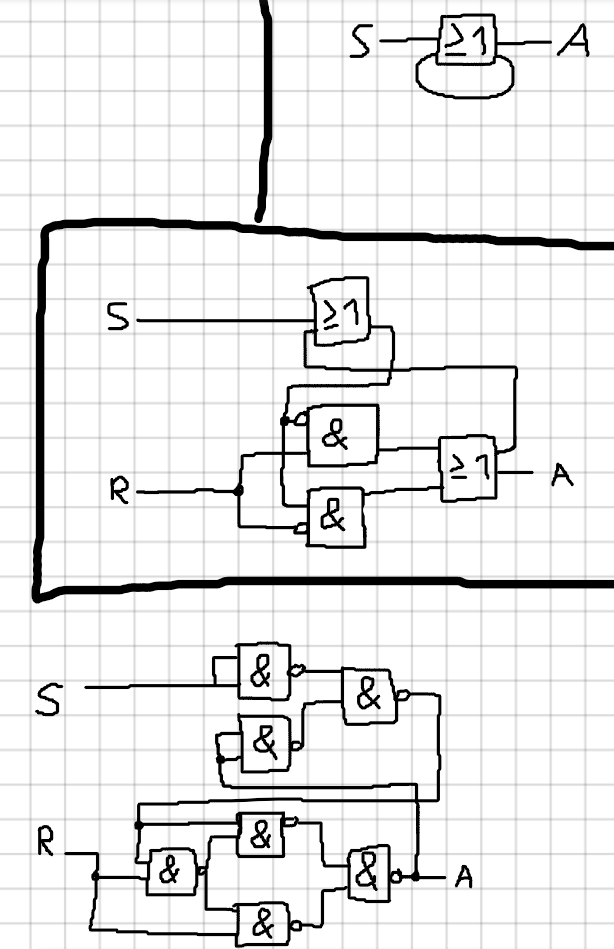 S ≥1 A
S ≥1
&
R ≥1 A
&
S & &
&
R &
& & A
&